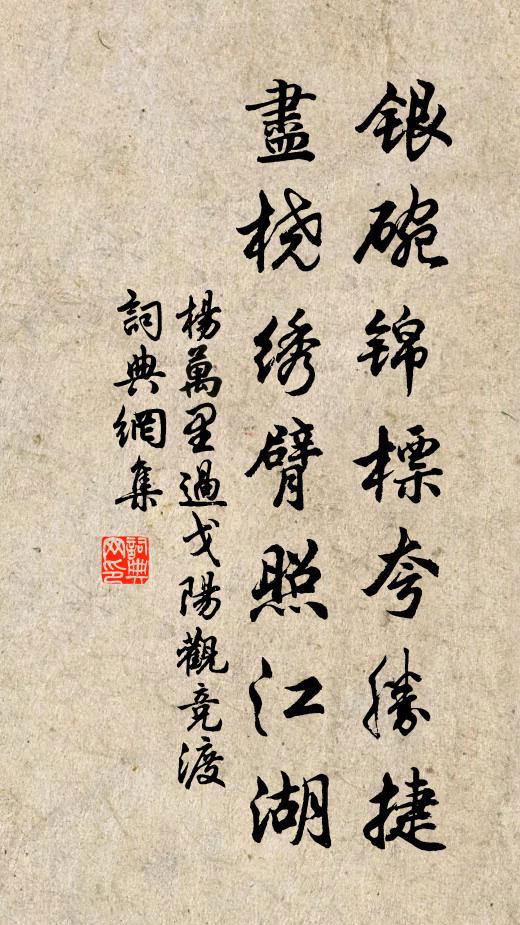 银碗锦標夸勝捷
畫桡绣臂照江湖
楊萬里過弋陽觀竞渡
詞典網集
詞典网印